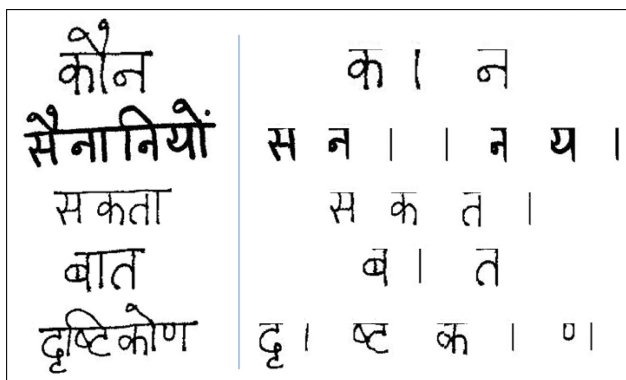 कौन क ा न
सैनानियों स न ा ा न य ा
सकता स क त ा
बात ब ा त
दृष्टिकोण दृ ा ष्ट क ा ण